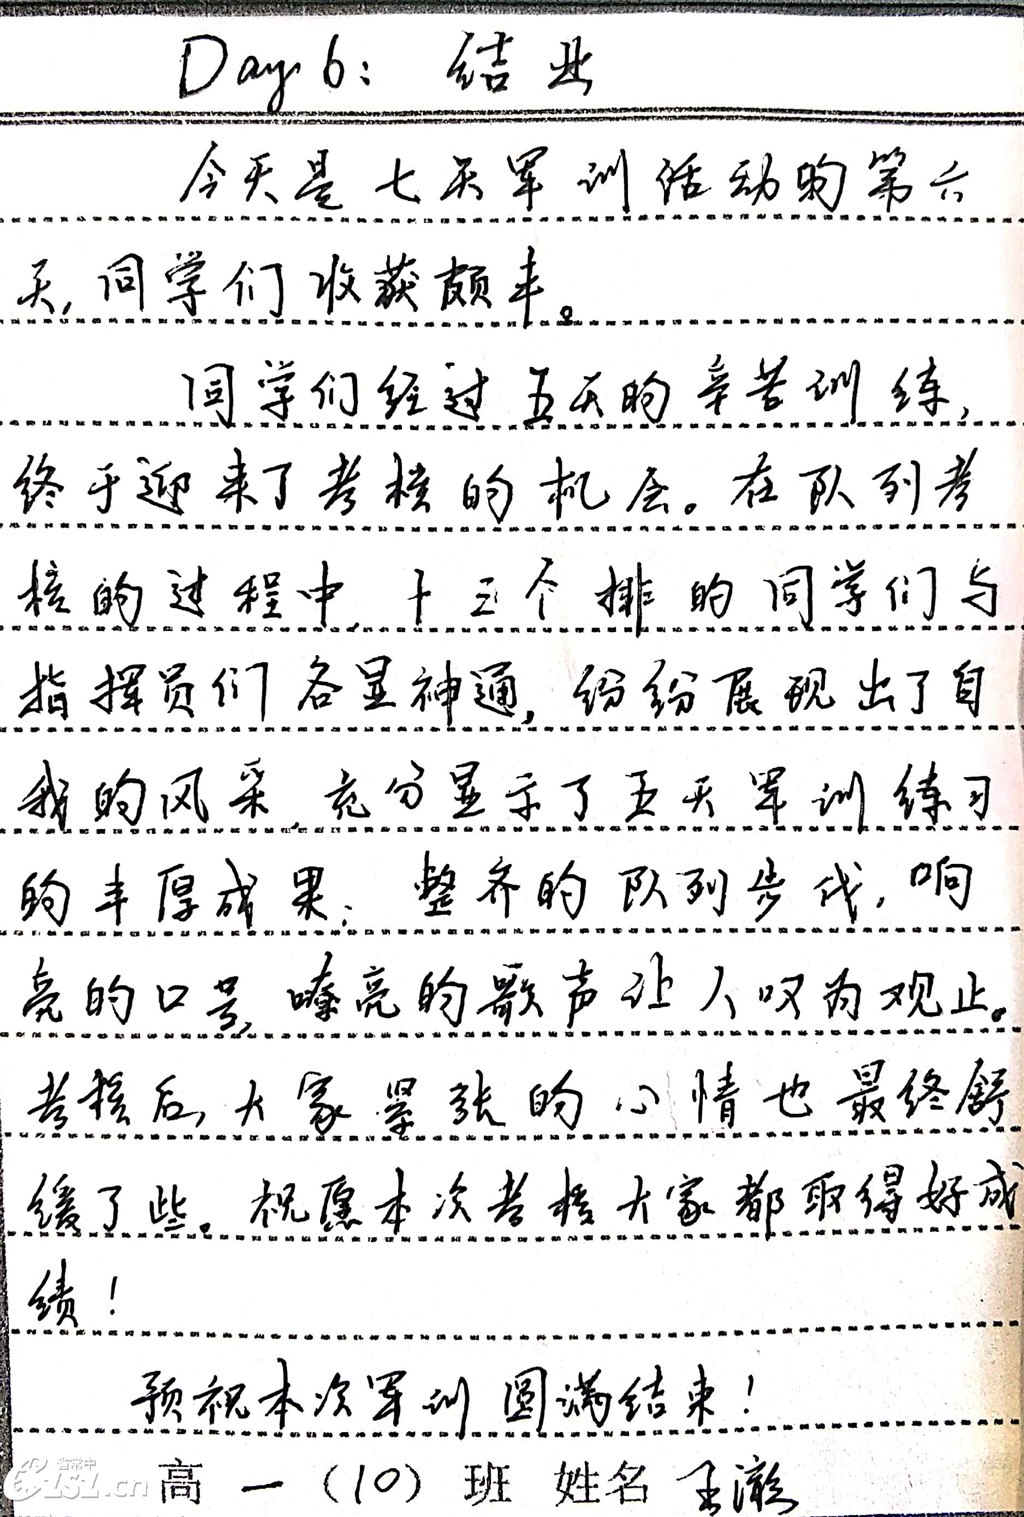 Day 6: 结业
今天是七天军训活动的第六
天,同学们收获颇丰。
同学们经过五天的辛苦训练,
终于迎来了考核的机会。在队列考
核的过程中,十三个排的同学们与
指挥员们各显神通,纷纷展现出了自
我的风采,充分显示了五天军训练习
的丰厚成果:整齐的队列步伐,响
亮的口号,嘹亮的歌声让人叹为观止。
考核后,大家紧张的心情也最终舒
缓了些。祝愿本次考核大家都取得好成
绩!
预祝本次军训圆满结束!
高一(10)班 姓名 王
省常中
.cn